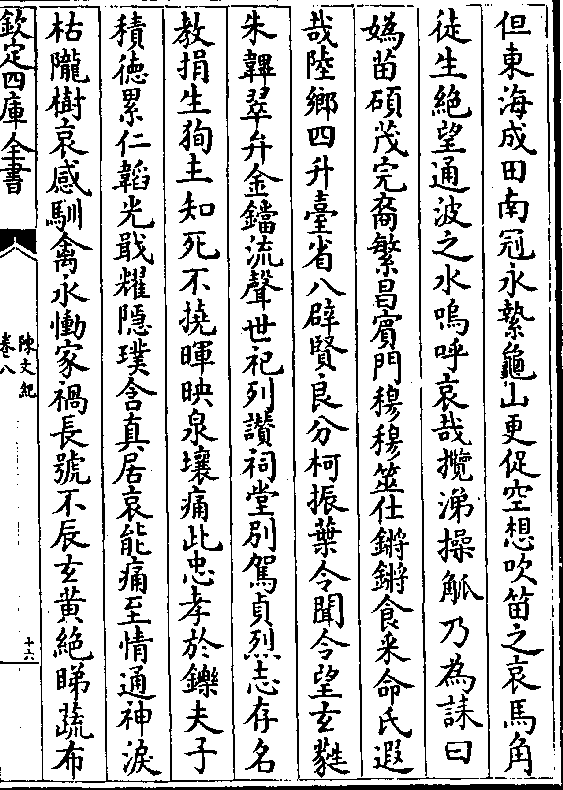 但東海成田南冠永縶龜山更促空想吹笛之哀馬角
徒生絶望通波之水嗚呼哀哉攬涕操觚乃為誄曰
媯苗碩茂完裔繁昌賓門穆穆筮仕鏘鏘食釆命氏遐
哉陸鄉四升臺省八辟賢良分柯振葉令聞令望玄㲠
朱韠翠弁金鐺流聲世祀列讚祠堂别駕貞烈志存名
教捐生狥主知死不撓暉映泉壤痛此忠孝於鑠夫子
積徳累仁韜光戢耀隠璞含真居哀能痛至情通神淚
枯隴樹哀感馴禽永慟家禍長號不辰玄黄絶睇蔬布
欽定四庫全書
陳文紀
卷八
十六